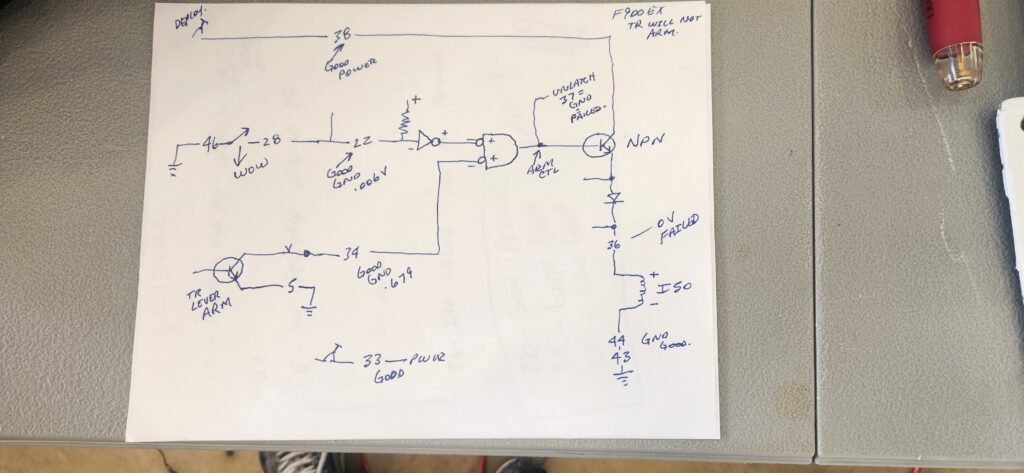 F900EX
TR WILL NOT
ARM.
DEPLOY.
38
GOOD
POWER
UNLATCH
37 =
GND
= FAILED.
+
46
28
22
+
+
NPN
WOW
GOOD
GND
.006V
-
+
-
ARM
CTL
34
GOOD
GND
.679
5
TR
LEVER
ARM
OV
FAILED
36
+
ISO
-
44
GND
GOOD.
43
33 — PWR
GOOD